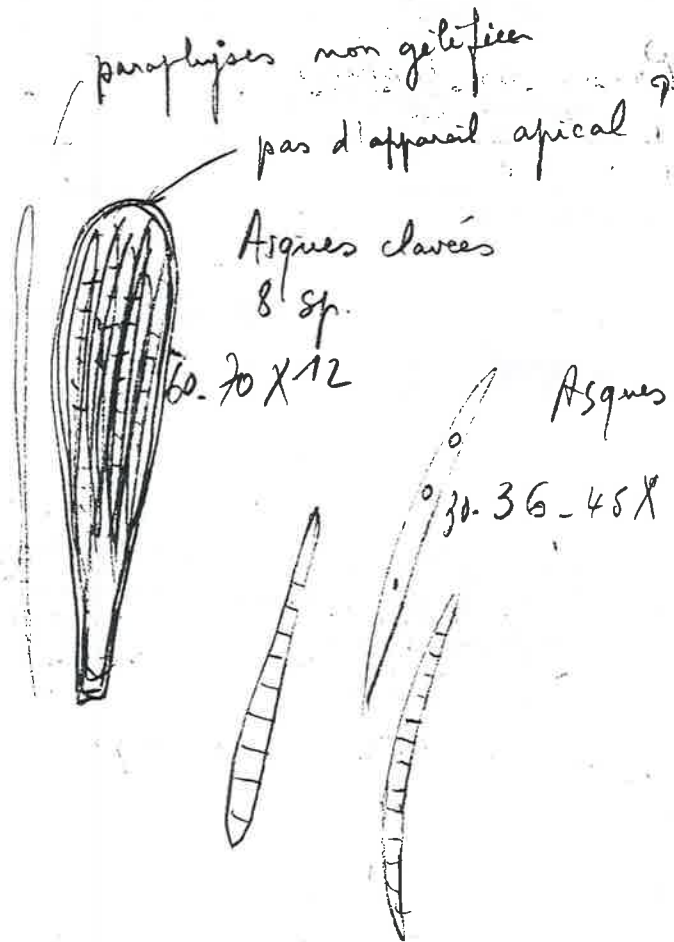 paraphyses non gélifiées
pas d'appareil apical ?
Asques clavées
8 sp.
60-70 X 12
Asques
30-36-45 X